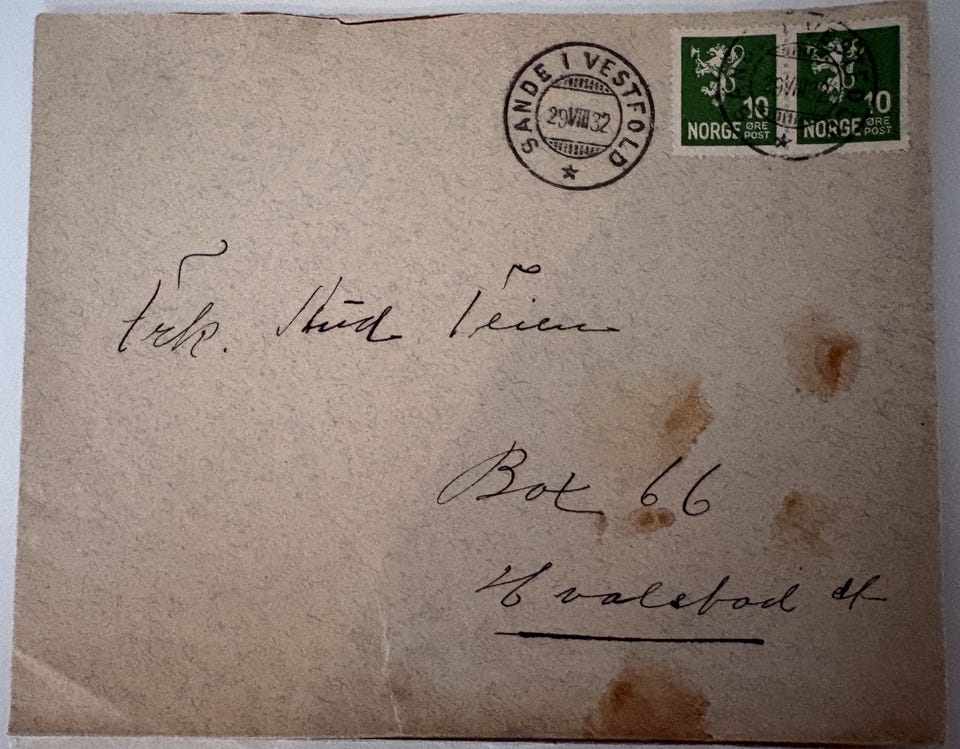 SANDE I VESTFOLD
29 VIII 32
10
NORGE ØRE POST
10
NORGE ØRE POST
Frk. Aud Teien
Box 66
Hvalstad st